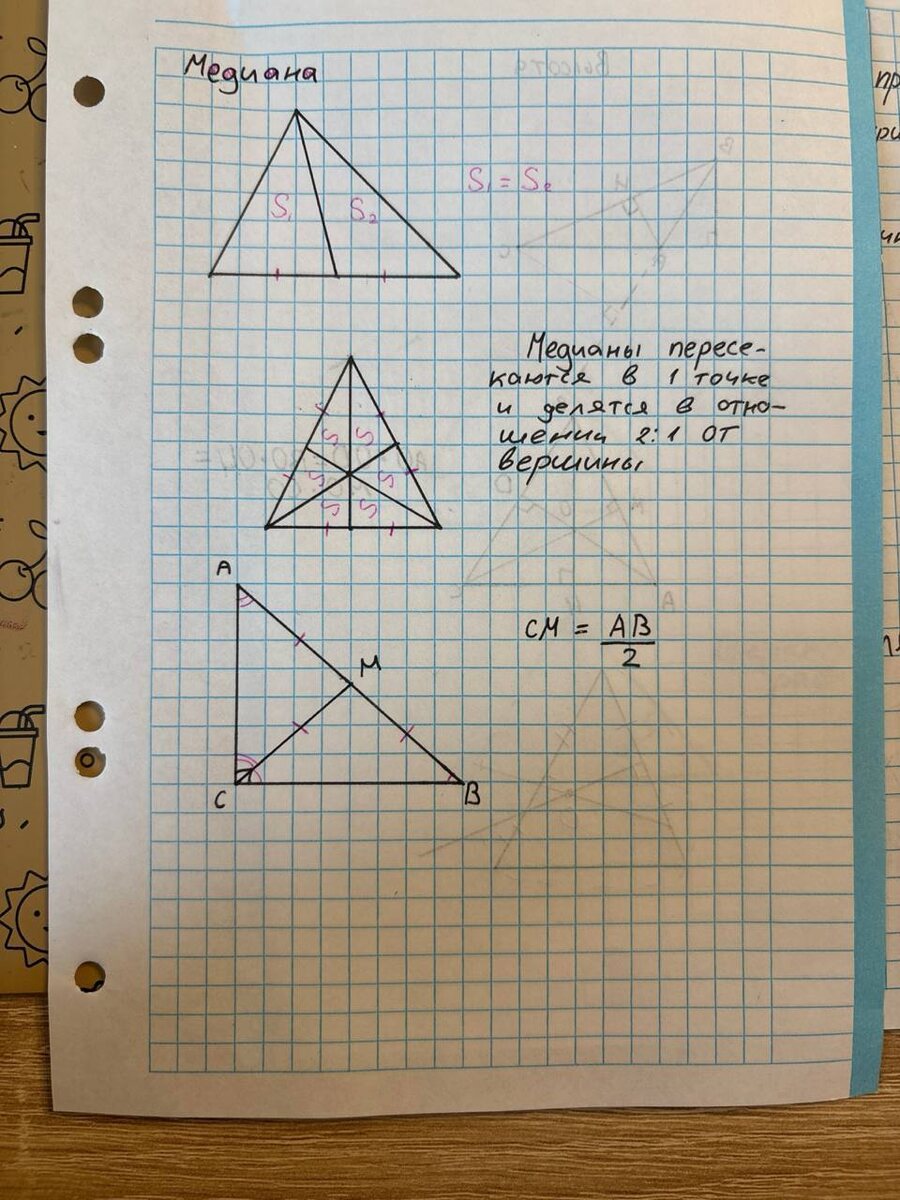 Медиана
S₁ S₂
S₁ = S₂
Медианы пересе-
каются в 1 точке
и делятся в отно-
шении 2:1 от
вершины
S S
S S
S S
A
M
C B
CM = AB/2